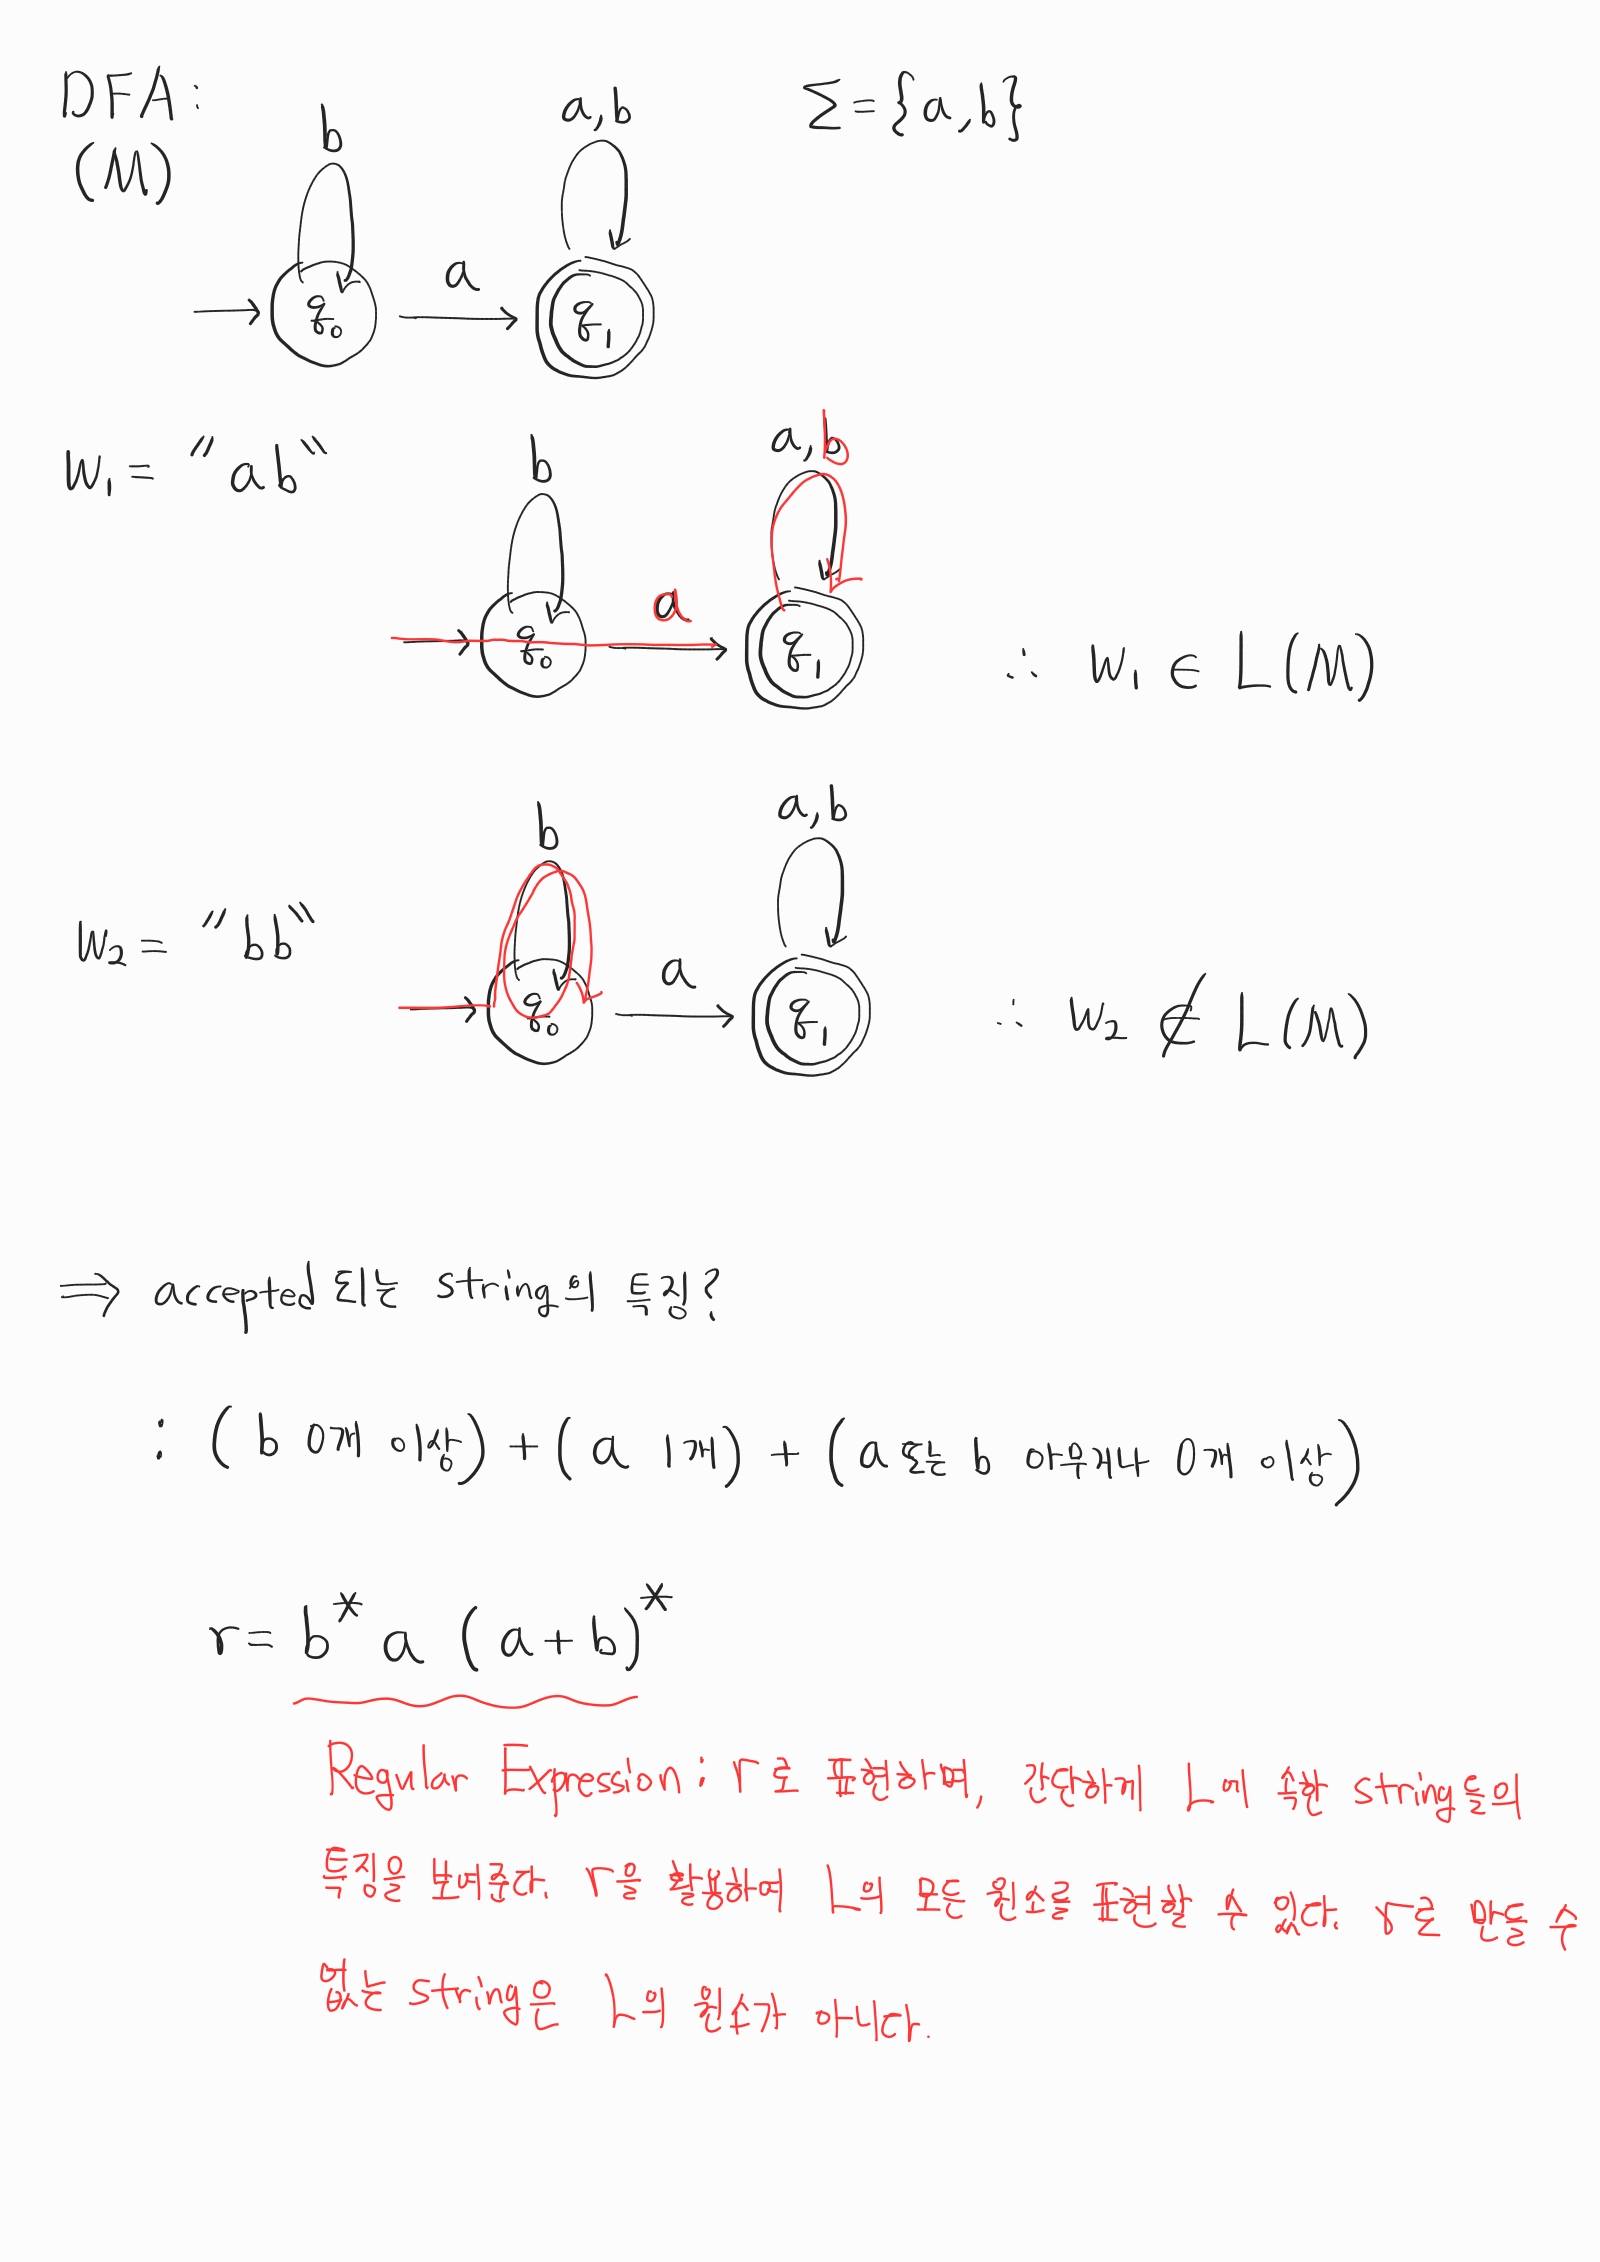 DFA:
(M)
b
a,b
Σ={a,b}
a
q₀
q₁
W₁ = "ab"
b
a,b
a
q₀
q₁
∴ W₁ ∈ L(M)
W₂ = "bb"
b
a,b
a
q₀
q₁
∴ W₂ ∉ L(M)
⇒ accepted 되는 string의 특징?
: (b 0개 이상) + (a 1개) + (a 또는 b 아무거나 0개 이상)
r = b* a (a+b)*
Regular Expression : r로 표현하며, 간단하게 L에 속한 string들의
특징을 보여준다. r을 활용하여 L의 모든 원소를 표현할 수 있다. r로 만들 수
없는 string은 L의 원소가 아니다.